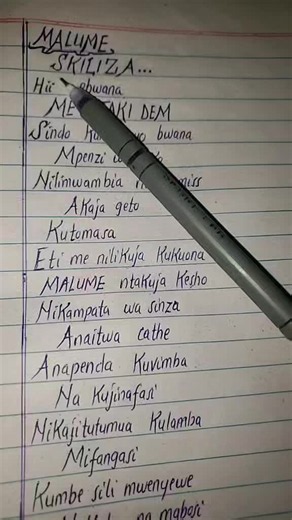 MALUME
SKILIZA...
Hii bwana
ME DEM
Sindo bwana
Mpenzi
Nilimwambia miss
Akaja geto
Kutomasa
Eti me nilikuja kukuona
MALUME ntakuja kesho
Nikampata wa sinza
Anaitwa cathe
Anapenda kuvimba
Na kujinafasi
Nikajitutumua kulamba
Mifangasi
Kumbe sili mwenyewe